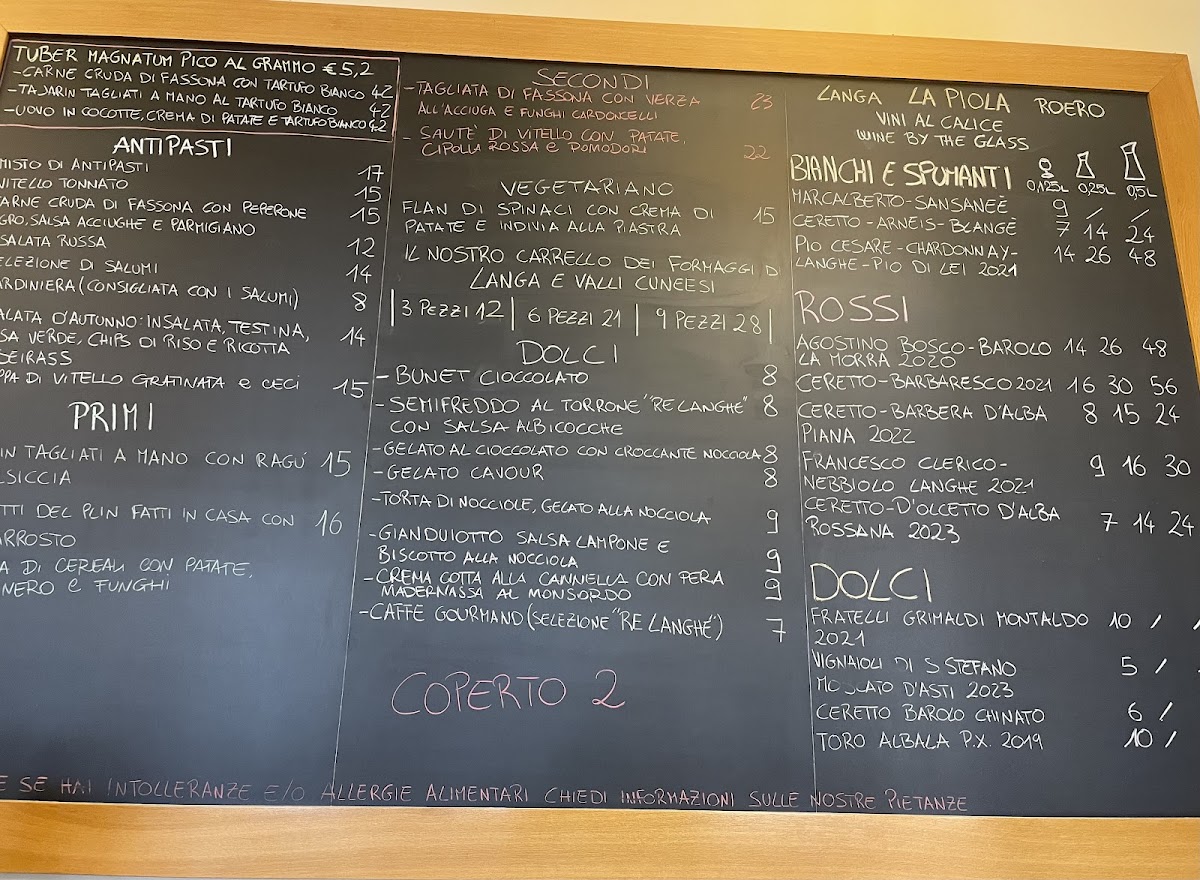 TUBER MAGNATUM PICO AL GRAMMO €5,2
-CARNE CRUDA DI FASSONA CON TARTUFO BIANCO 42
-TAJARIN TAGLIATI A MANO AL TARTUFO BIANCO 42
-UOVO IN COCOTTE, CREMA DI PATATE E TARTUFO BIANCO 42
ANTIPASTI
MISTO DI ANTIPASTI 17
VITELLO TONNATO 15
CARNE CRUDA DI FASSONA CON PEPERONE 15
GRO, SALSA ACCIUGHE E PARMIGIANO
SALATA RUSSA 12
ELEZIONE DI SALUMI 14
ARDINIERA (CONSIGLIATA CON I SALUMI) 8
ALATA D'AUTUNNO: INSALATA, TESTINA, 14
SA VERDE, CHIPS DI RISO E RICOTTA
SEIRASS
PPA DI VITELLO GRATINATA e CECI 15
PRIMI
IN TAGLIATI A MANO CON RAGÚ 15
LSICCIA
TTI DEL PLIN FATTI IN CASA CON 16
ARROSTO
A DI CEREALI CON PATATE,
NERO e FUNGHI
SECONDI
-TAGLIATA DI FASSONA CON VERZA 23
ALL'ACCIUGA E FUNGHI CARDONCELLI
- SAUTÈ DI VITELLO CON PATATE,
CIPOLLA ROSSA e POMODORI 22
VEGETARIANO
FLAN DI SPINACI CON CREMA DI 15
PATATE E INDIVIA ALLA PIASTRA
IL NOSTRO CARRELLO DEI FORMAGGI D
LANGA E VALLI CUNEESI
| 3 PEZZI 12 | 6 PEZZI 21 | 9 PEZZI 28 |
DOLCI
- BUNET CIOCCOLATO 8
-SEMIFREDDO AL TORRONE "RE LANGHE" 8
CON SALSA ALBICOCCHE
-GELATO AL CIOCCOLATO CON CROCCANTE NOCCIOLA 8
-GELATO CAVOUR 8
-TORTA DI NOCCIOLE, GELATO ALLA NOCCIOLA 9
-GIANDUIOTTO SALSA LAMPONE E
BISCOTTO ALLA NOCCIOLA 9
-CREMA COTTA ALLA CANNELLA CON PERA 9
MADERNASSA AL MONSORDO
-CAFFE GOURMAND (SELEZIONE "RE LANGHE") 7
COPERTO 2
LANGA LA PIOLA ROERO
VINI AL CALICE
WINE BY THE GLASS
BIANCHI E SPUMANTI 0,125L 0,25L 0,5L
MARCALBERTO-SANSANEÈ 9 / /
CERETTO-ARNEIS-BLANGÈ 7 14 24
PIO CESARE-CHARDONNAY- 14 26 48
LANGHE-PIO DI LEI 2021
ROSSI
AGOSTINO BOSCO-BAROLO 14 26 48
LA MORRA 2020
CERETTO-BARBARESCO 2021 16 30 56
CERETTO-BARBERA D'ALBA 8 15 24
PIANA 2022
FRANCESCO CLERICO- 9 16 30
NEBBIOLO LANGHE 2021
CERETTO-D'OLCETTO D'ALBA 7 14 24
ROSSANA 2023
DOLCI
FRATELLI GRIMALDI MONTALDO 10 /
2021
VIGNAIOLI DI S STEFANO 5 /
MOSCATO D'ASTI 2023
CERETTO BAROLO CHINATO 6 /
TORO ALBALA P.X. 2019 10 /
E SE HAI INTOLLERANZE E/O ALLERGIE ALIMENTARI CHIEDI INFORMAZIONI SULLE NOSTRE PIETANZE